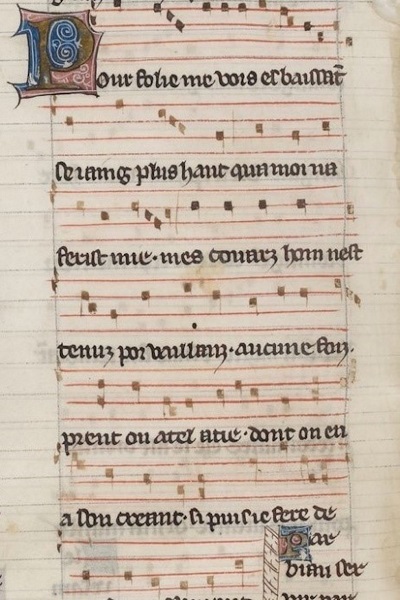 Pour folie me vois esbaissāt
se iaing plus haut qua moi na
ferist mie · mes couarz hom nest
tenuz por vaillanz · aucune foiz ·
prent on a tel atie · dont on en
a son creant · si puis ie fere de
Par
bien ser